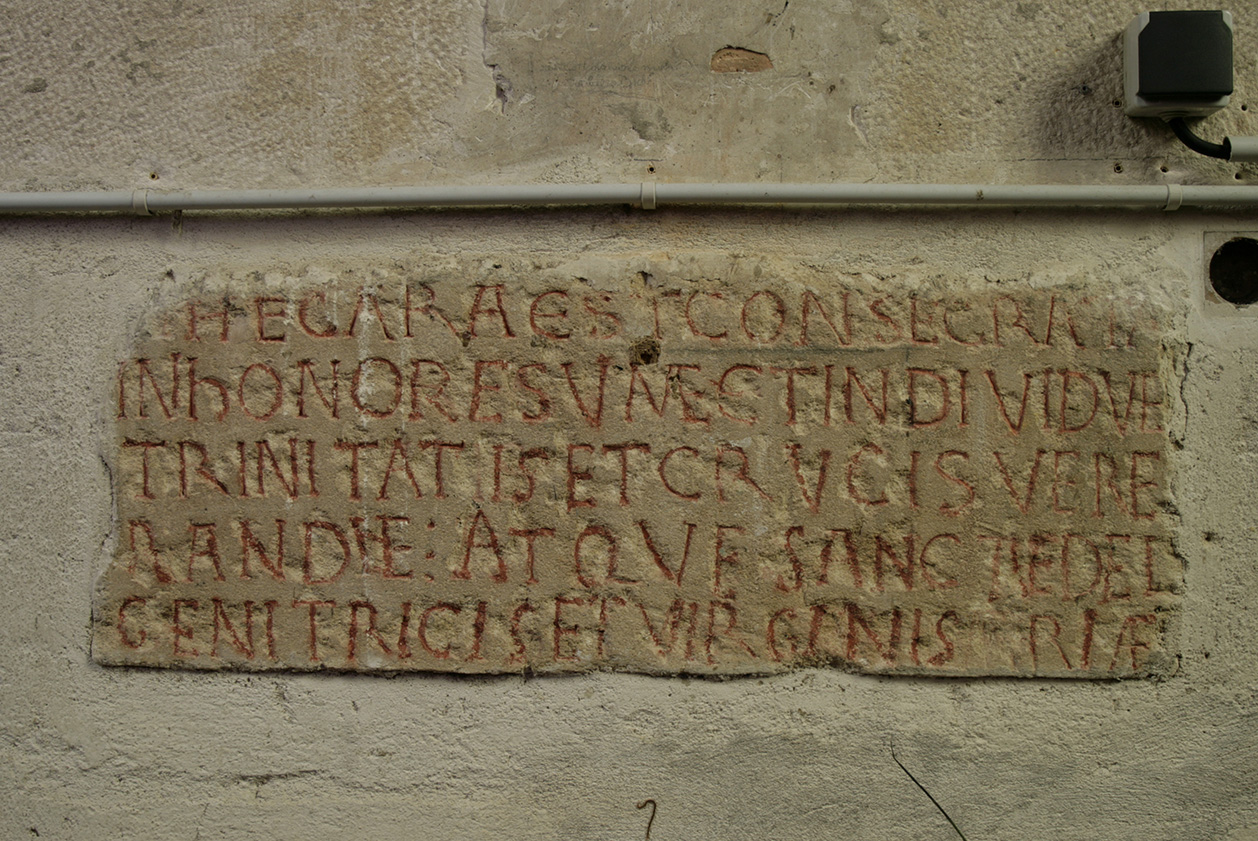 HEC ARA EST CONSECRATA
IN hONORE SVMME ET INDIVIDVE
TRINITATIS ET CRVCIS VENE
RANDIE: ATQVE SANCTE DEI
GENITRICIS ET VIRGINIS